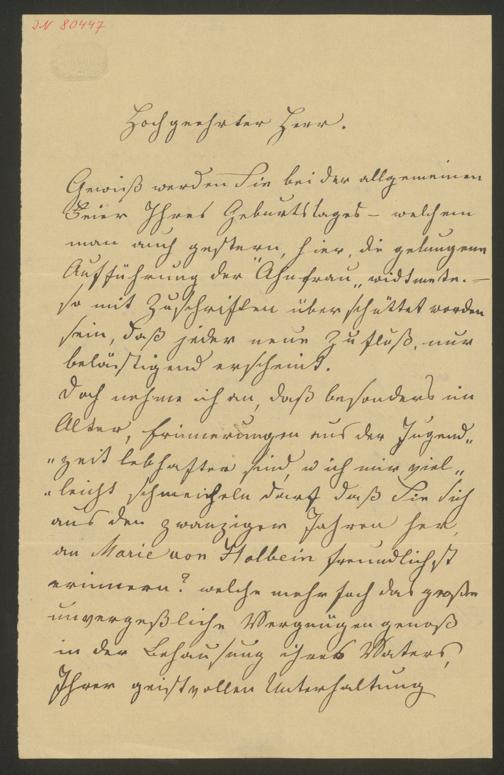 JN 80447
Hochgeehrter Herr.
Gewiß werden Sie bei der allgemeinen
Feier Ihres Geburtstages – welchem
man auch gestern, hier, die gelungene
Aufführung der "Ahnfrau" widmete. –
so mit Zuschriften überschüttet worden
sein, daß jeder neue Zufluß, nur
belästigend erscheint.
Doch nehme ich an, daß besonders im
Alter, Erinnerungen aus der Jugend„
„zeit lebhafter sind, u ich mir viel„
„leicht schmeicheln darf daß Sie sich
aus den zwanziger Jahren her,
an Marie von Holbein freundlichst
erinnern? welche mehrfach das große
unvergeßliche Vergnügen genoß
in der Behausung ihres Vaters,
Ihrer geistvollen Unterhaltung